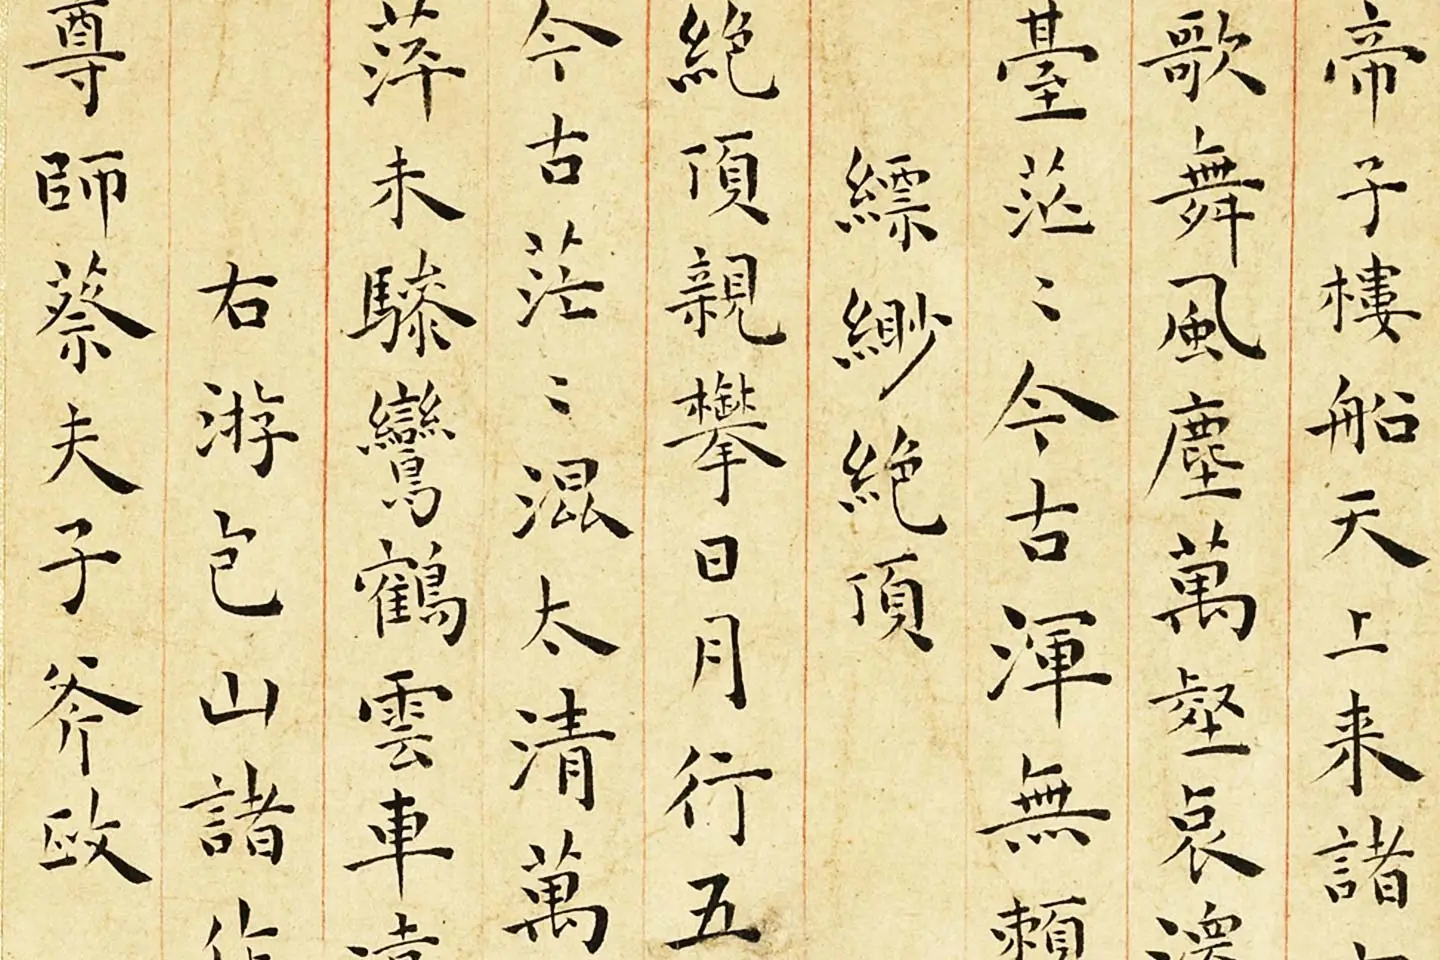 帝子樓船天上来諸
歌舞風塵萬壑哀
臺茫〻今古渾無賴
縹緲絶頂
絶頂親攀日月行五
今古茫〻混太清萬
萍未驂鸞鶴雲車
右游包山諸作
尊師蔡夫子斧政